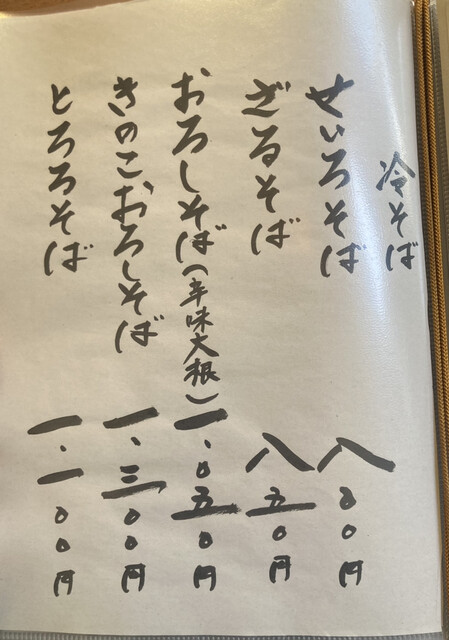 冷そば
せいろそば 八〇〇円
ざるそば 八五〇円
おろしそば(辛味大根) 一、〇五〇円
きのこおろしそば 一、三〇〇円
とろろそば 一、一〇〇円